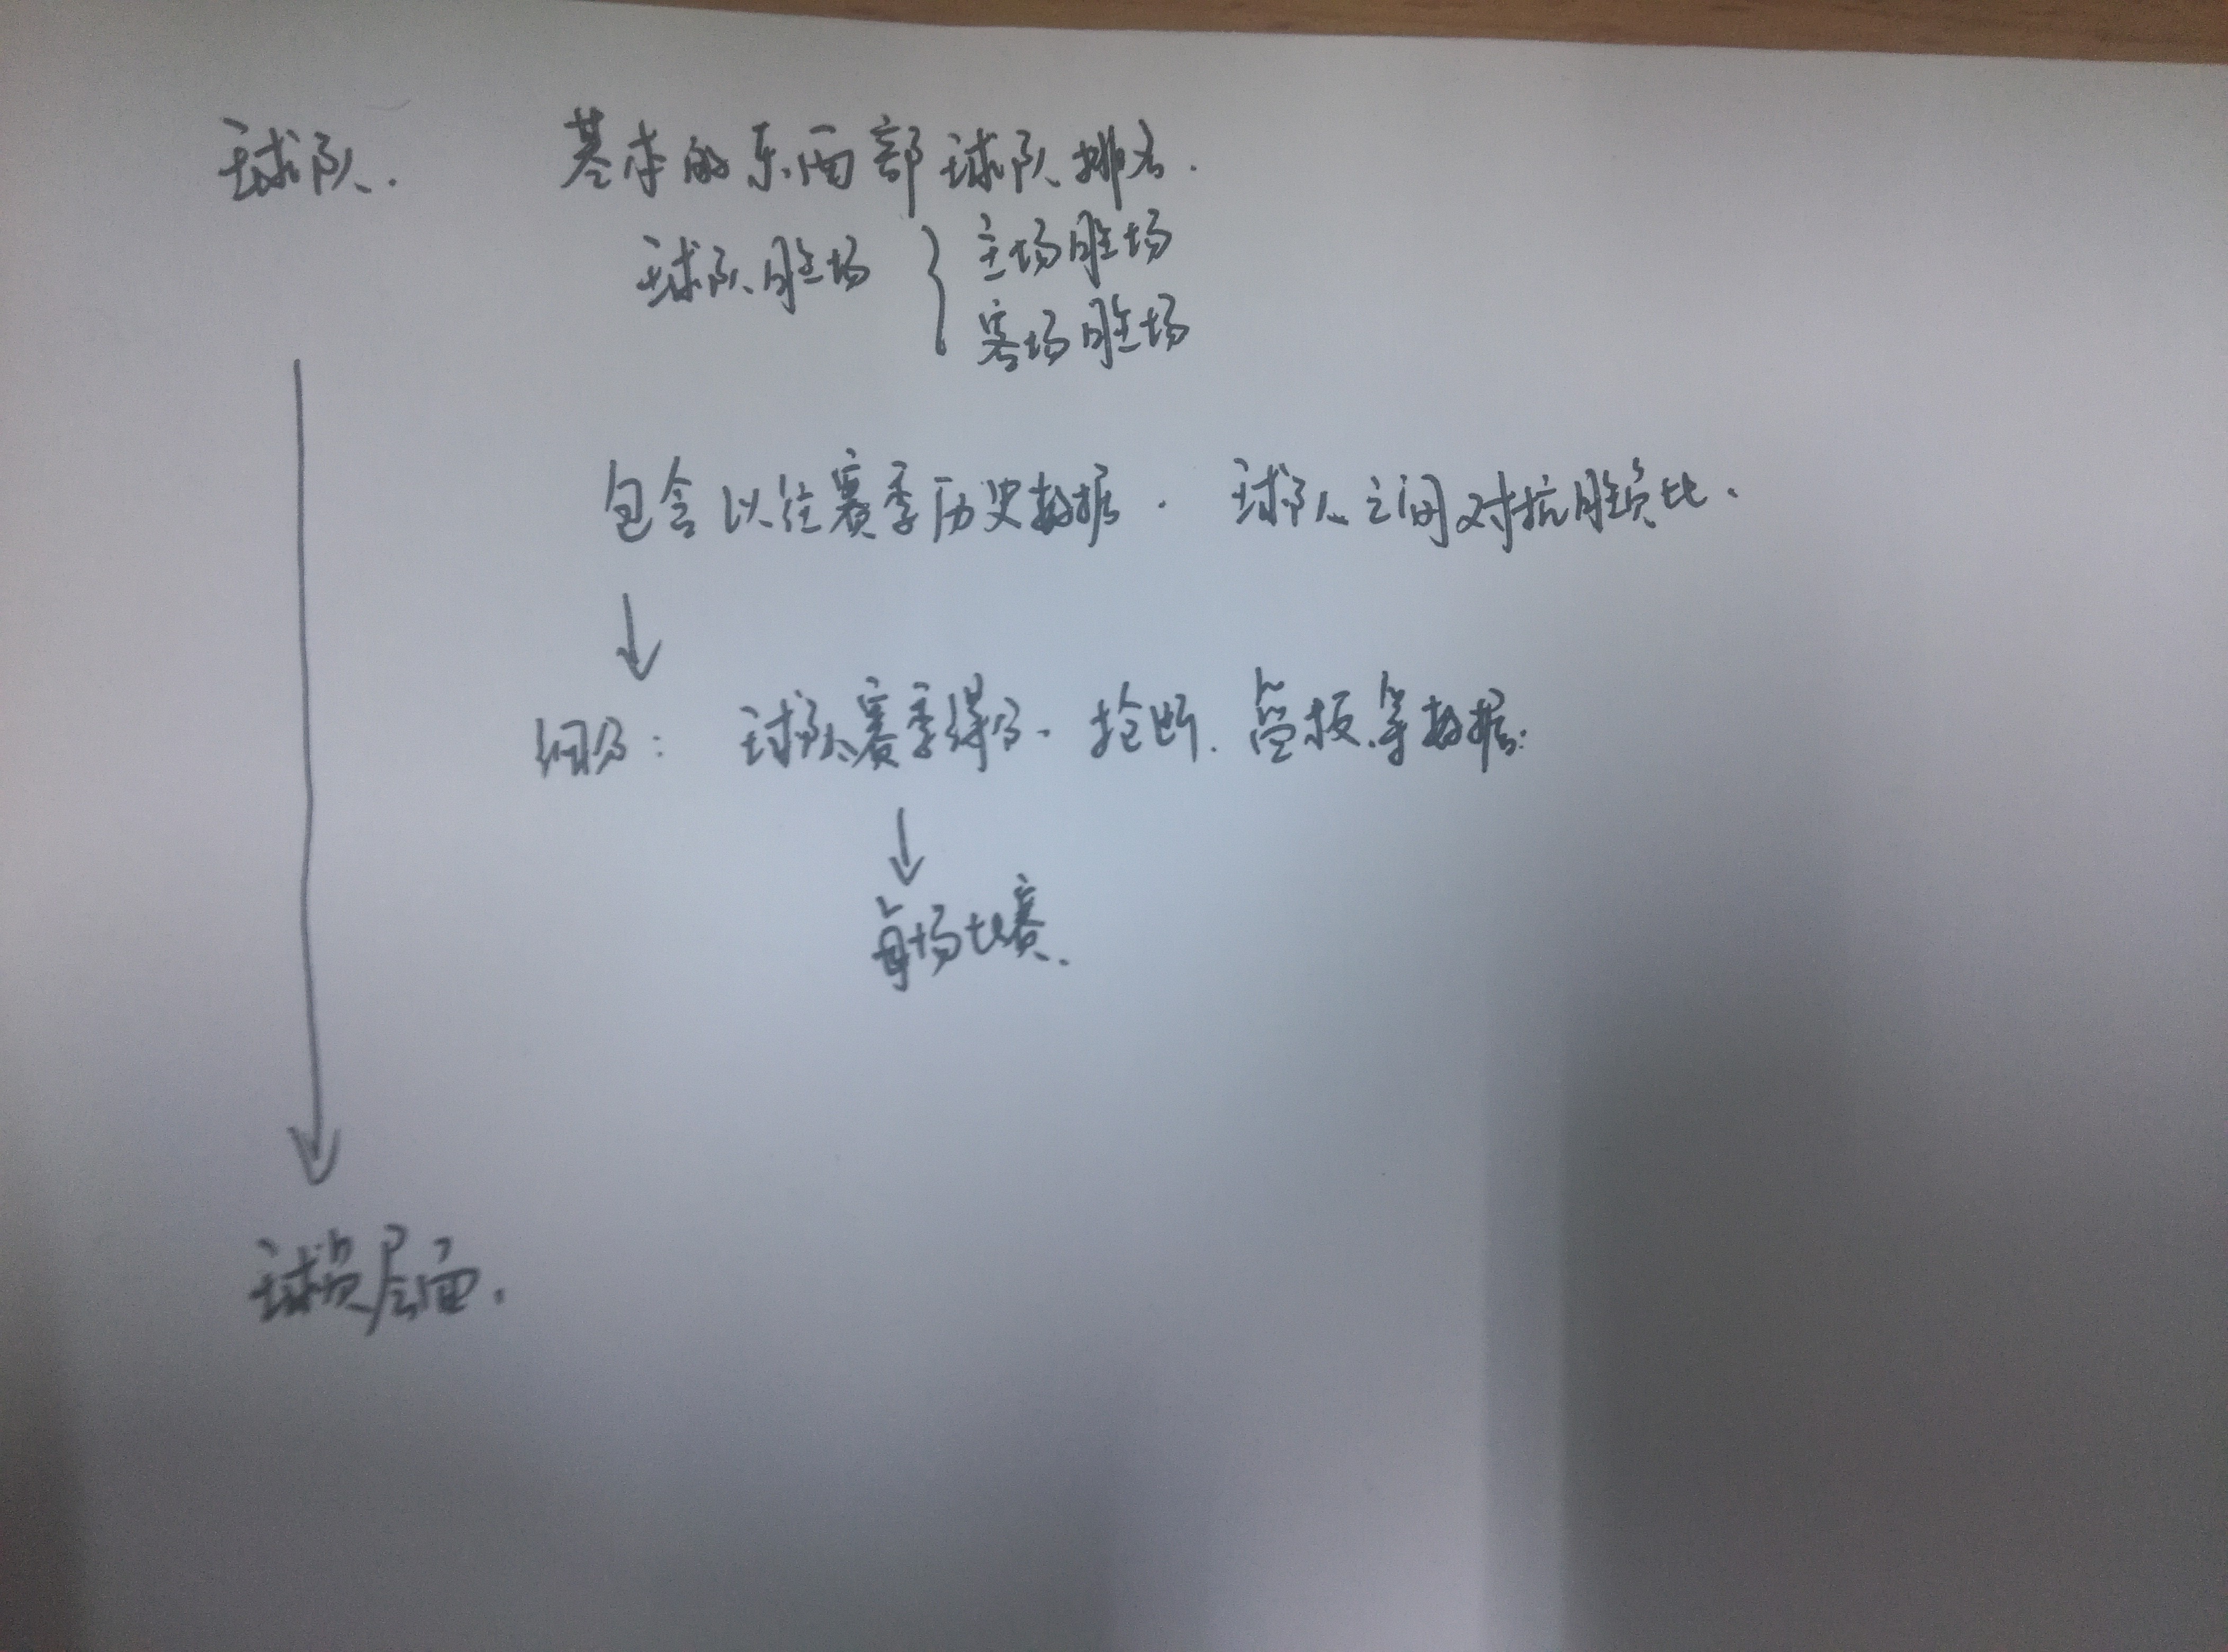 球队. 基本的东西部球队排名.
球队胜场 { 主场胜场
客场胜场
包含以往赛季历史数据. 球队之间对抗胜负比.
↓
细分: 球队赛季得分、抢断. 篮板.等数据.
↓
每场比赛.
球员层面.